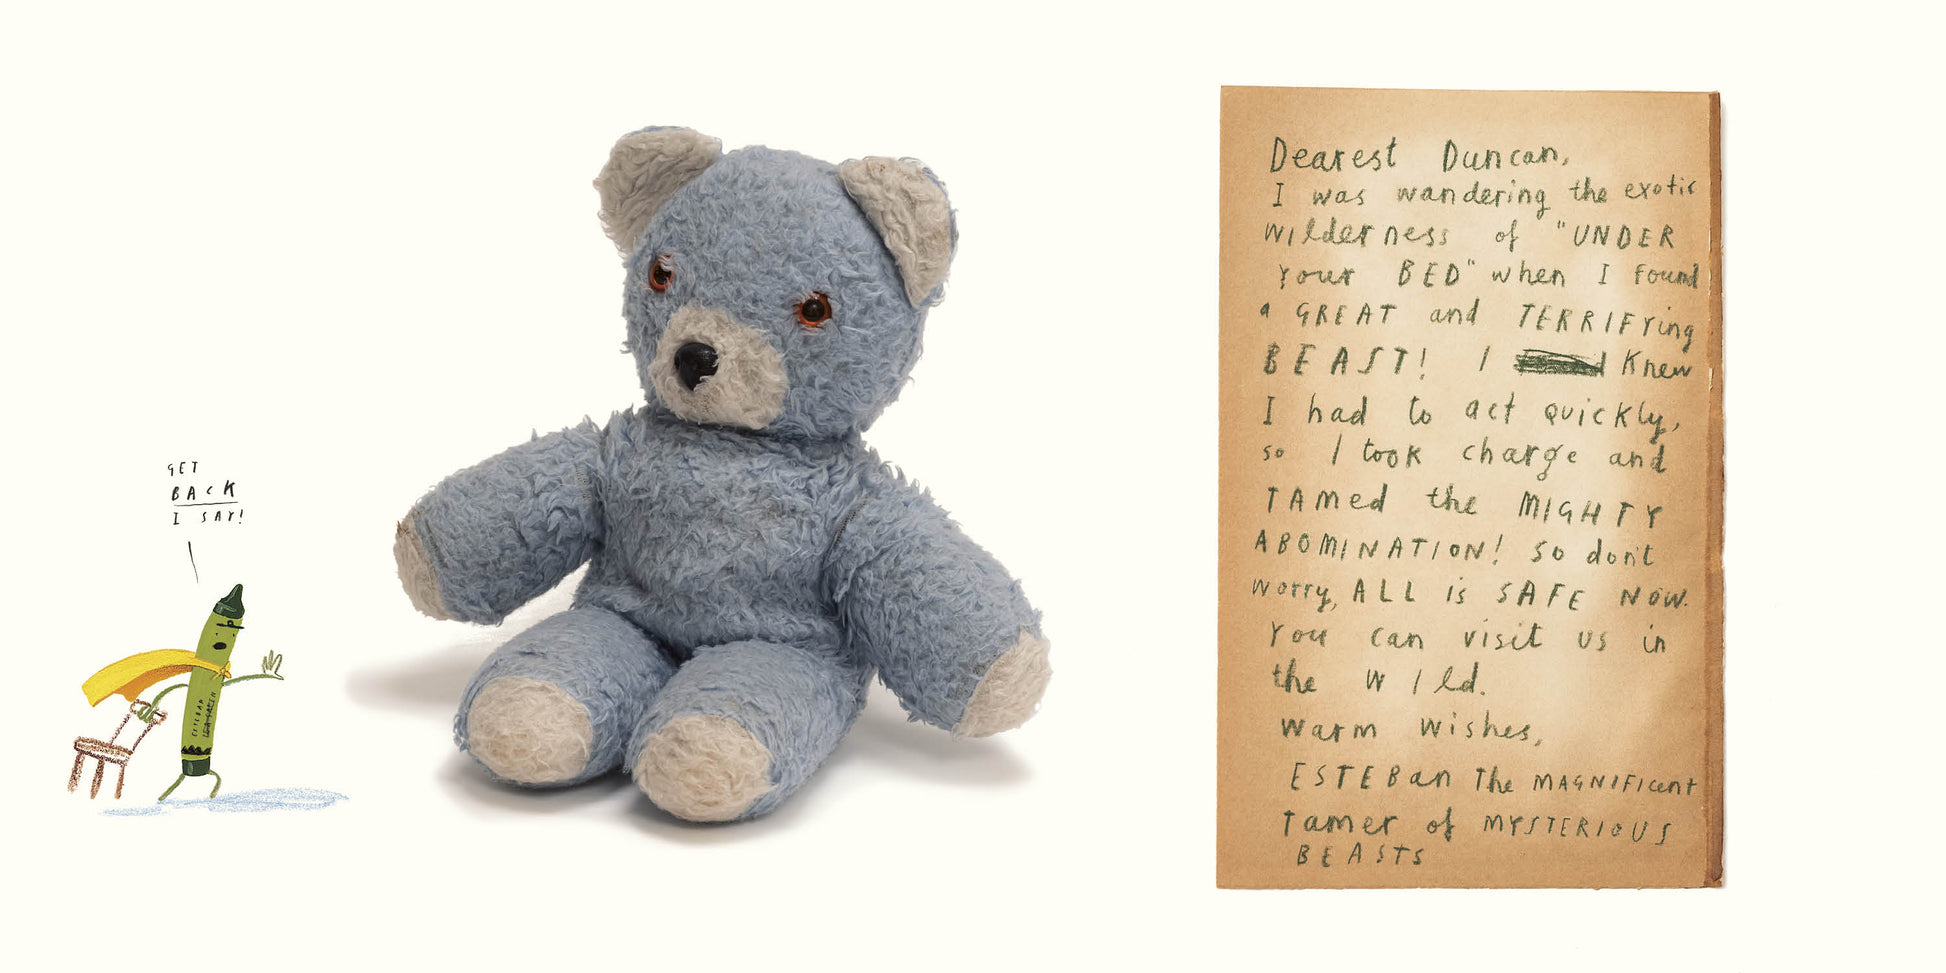 GET
BACK
I SAY!
ESTEBAN
Dearest Duncan,
I was wandering the exotic
wilderness of "UNDER
Your BED" when I Found
a GREAT and TERRIFYing
BEAST! I Knew
I had to act quickly,
so I took charge and
TAMed the MIGHTY
ABOMINATION! so don't
worry, ALL is SAFE NOW.
You can visit us in
the WIld.
warm wishes,
ESTEBan The MAGNIFIcent
Tamer of MYSTERIOUS
BEASTS